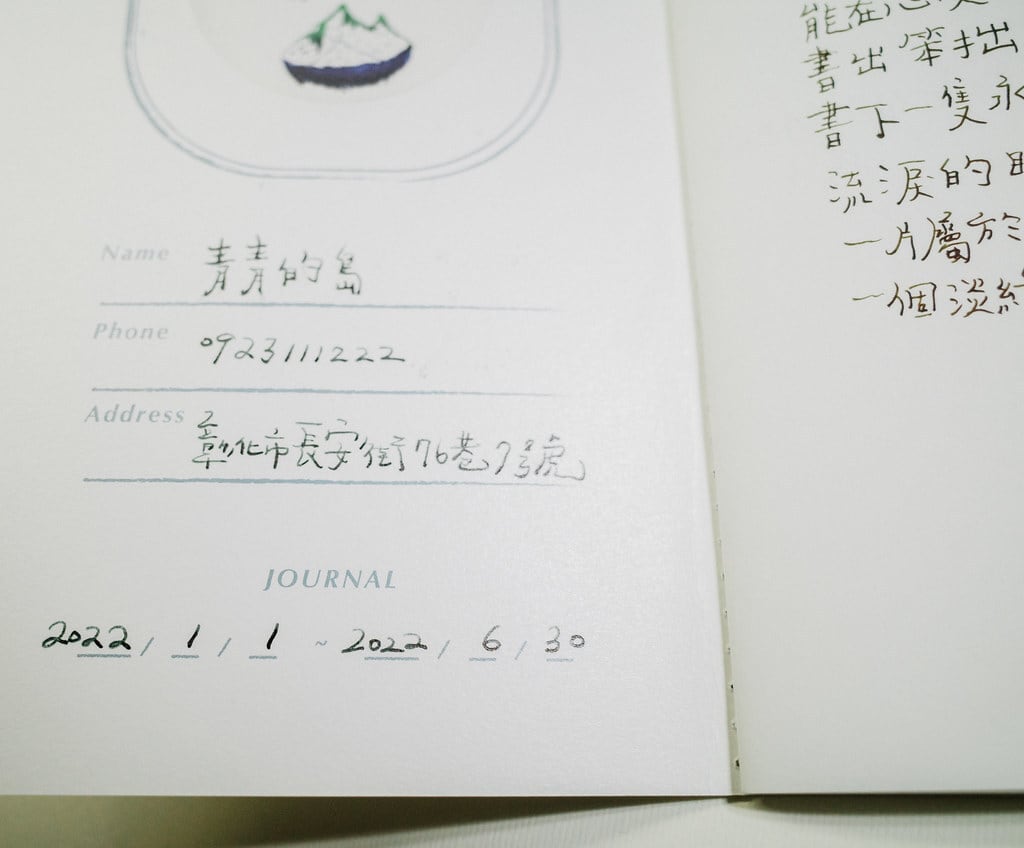 Name 青青的島
Phone 0923111222
Address 彰化市長安街76巷7號
JOURNAL
2022 / 1 / 1 ~ 2022 / 6 / 30
能在
書出笨拙
書下一隻永
流淚的
一片屬於
一個淡紅